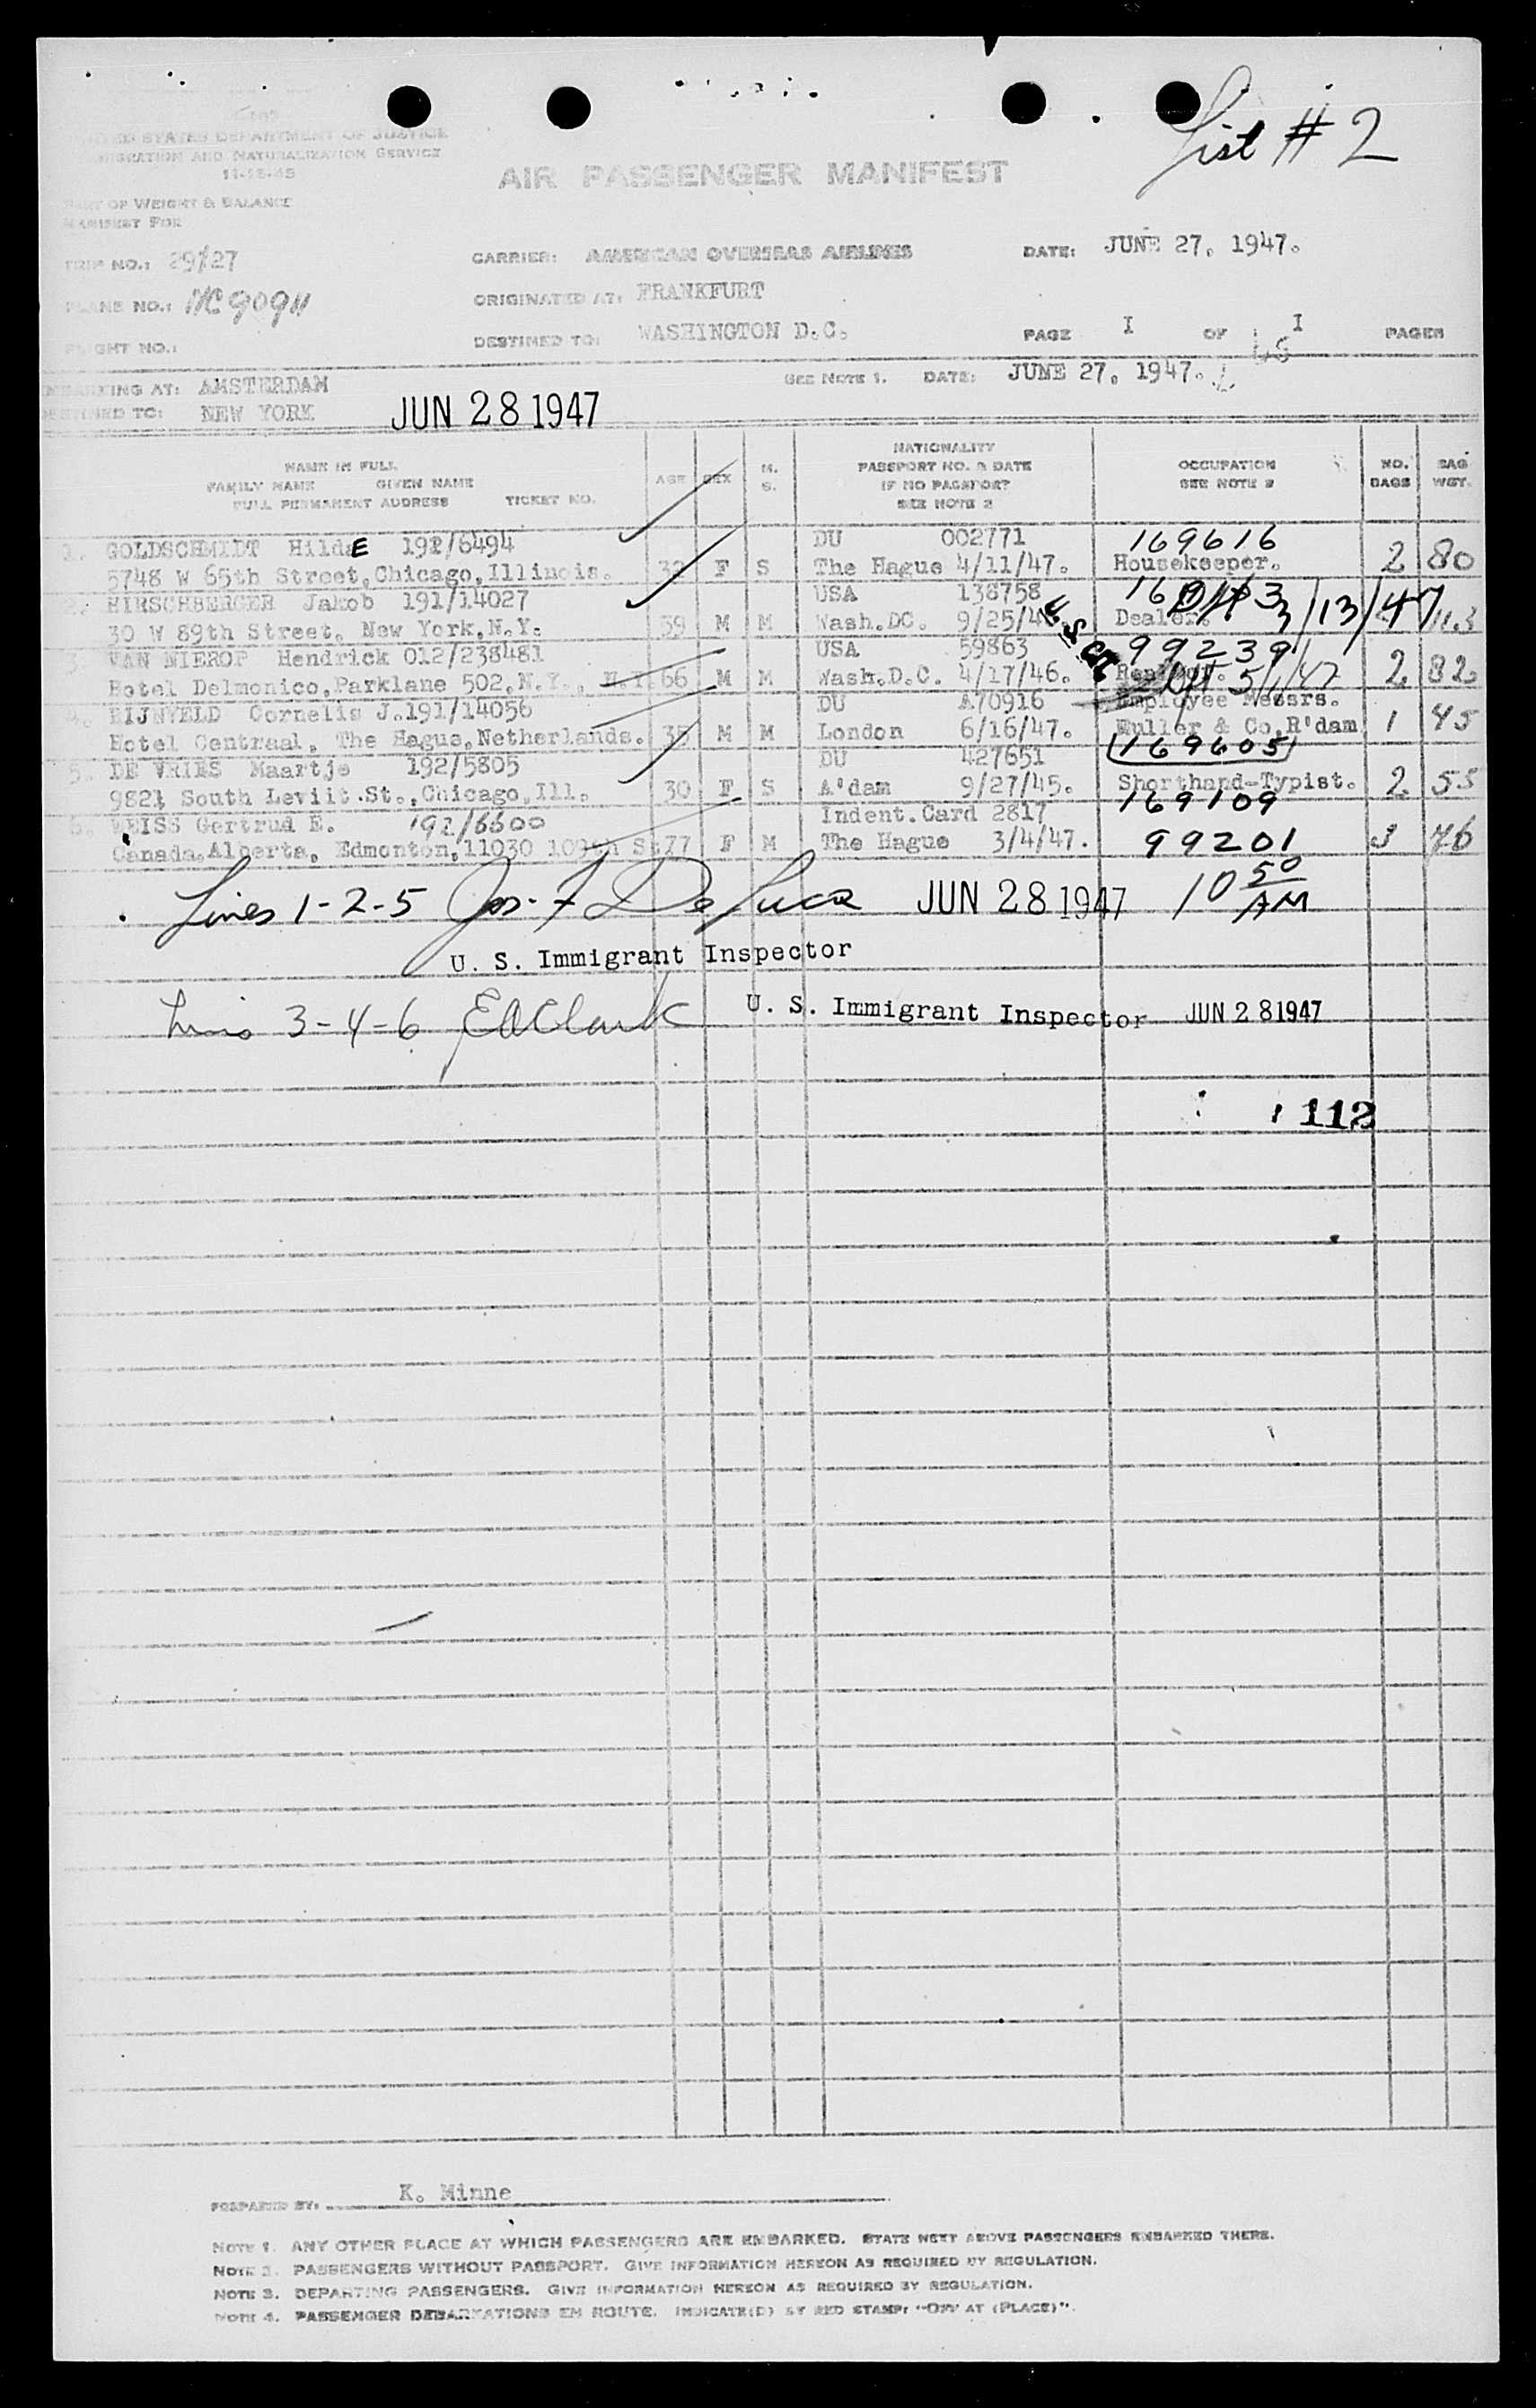 List # 2
UNITED STATES DEPARTMENT OF JUSTICE
IMMIGRATION AND NATURALIZATION SERVICE
11-15-45
AIR PASSENGER MANIFEST
PART OF WEIGHT & BALANCE
MANIFEST FOR
TRIP NO.: 29/27 CARRIER: AMERICAN OVERSEAS AIRLINES DATE: JUNE 27. 1947.
PLANE NO.: NC 90911 ORIGINATED AT: FRANKFURT
FLIGHT NO.: DESTINED TO: WASHINGTON D.C. PAGE I OF I PAGES
EMBARKING AT: AMSTERDAM SEE NOTE 1. DATE: JUNE 27. 1947.
DESTINED TO: NEW YORK JUN 28 1947
NAME IN FULL
FAMILY NAME GIVEN NAME
FULL PERMANENT ADDRESS TICKET NO.
AGE SEX M. S.
NATIONALITY
PASSPORT NO. & DATE
IF NO PASSPORT
SEE NOTE 2
OCCUPATION
SEE NOTE 3
NO. BAGS
BAG WGT.
1. GOLDSCHMIDT HildE 192/6494 DU 002771 169616
5748 W 65th Street, Chicago, Illinois. 32 F S The Hague 4/11/47. Housekeeper. 2 80
2. HIRSCHBERGER Jakob 191/14027 USA 138758 3/13/47
30 W 89th Street. New York, N.Y. 59 M M Wash.DC. 9/25/4 Dealer.
3. VAN NIEROP Hendrick 012/238481 USA 59863 USCZ 99239
Hotel Delmonico, Parklane 502, N.Y., N.Y. 66 M M Wash.D.C. 4/17/46. 5/1/47 2 82
4. RIJNVELD Cornelis J. 191/14056 DU A70916 Employee Messrs.
Hotel Centraal, The Hague, Netherlands. 35 M M London 6/16/47. Muller & Co, R'dam 1 45
5. DE VRIES Maartje 192/5805 DU 427651 169605
9821 South Leviit.St., Chicago, Ill. 30 F S A'dam 9/27/45. Shorthand-Typist. 2 55
6. WEISS Gertrud E. 192/6600 Indent.Card 2817 169109
Canada, Alberta, Edmonton, 11030 109th St 77 F M The Hague 3/4/47. 99201 3 76
Lines 1-2-5 Jos. F DeLuca JUN 28 1947 10 50 AM
U. S. Immigrant Inspector
Lines 3-4-6 EdClark U. S. Immigrant Inspector JUN 28 1947
112
PREPARED BY: K. Minne
NOTE 1. ANY OTHER PLACE AT WHICH PASSENGERS ARE EMBARKED. STATE NEXT ABOVE PASSENGERS EMBARKED THERE.
NOTE 2. PASSENGERS WITHOUT PASSPORT. GIVE INFORMATION HEREON AS REQUIRED BY REGULATION.
NOTE 3. DEPARTING PASSENGERS. GIVE INFORMATION HEREON AS REQUIRED BY REGULATION.
NOTE 4. PASSENGER DEBARKATIONS EN ROUTE. INDICATE(D) BY RED STAMP: "OFF AT (PLACE)".